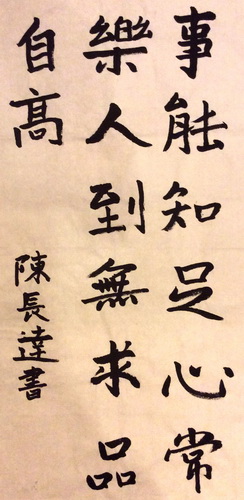 事能知足心常
樂人到無求品
自高
陳長達書